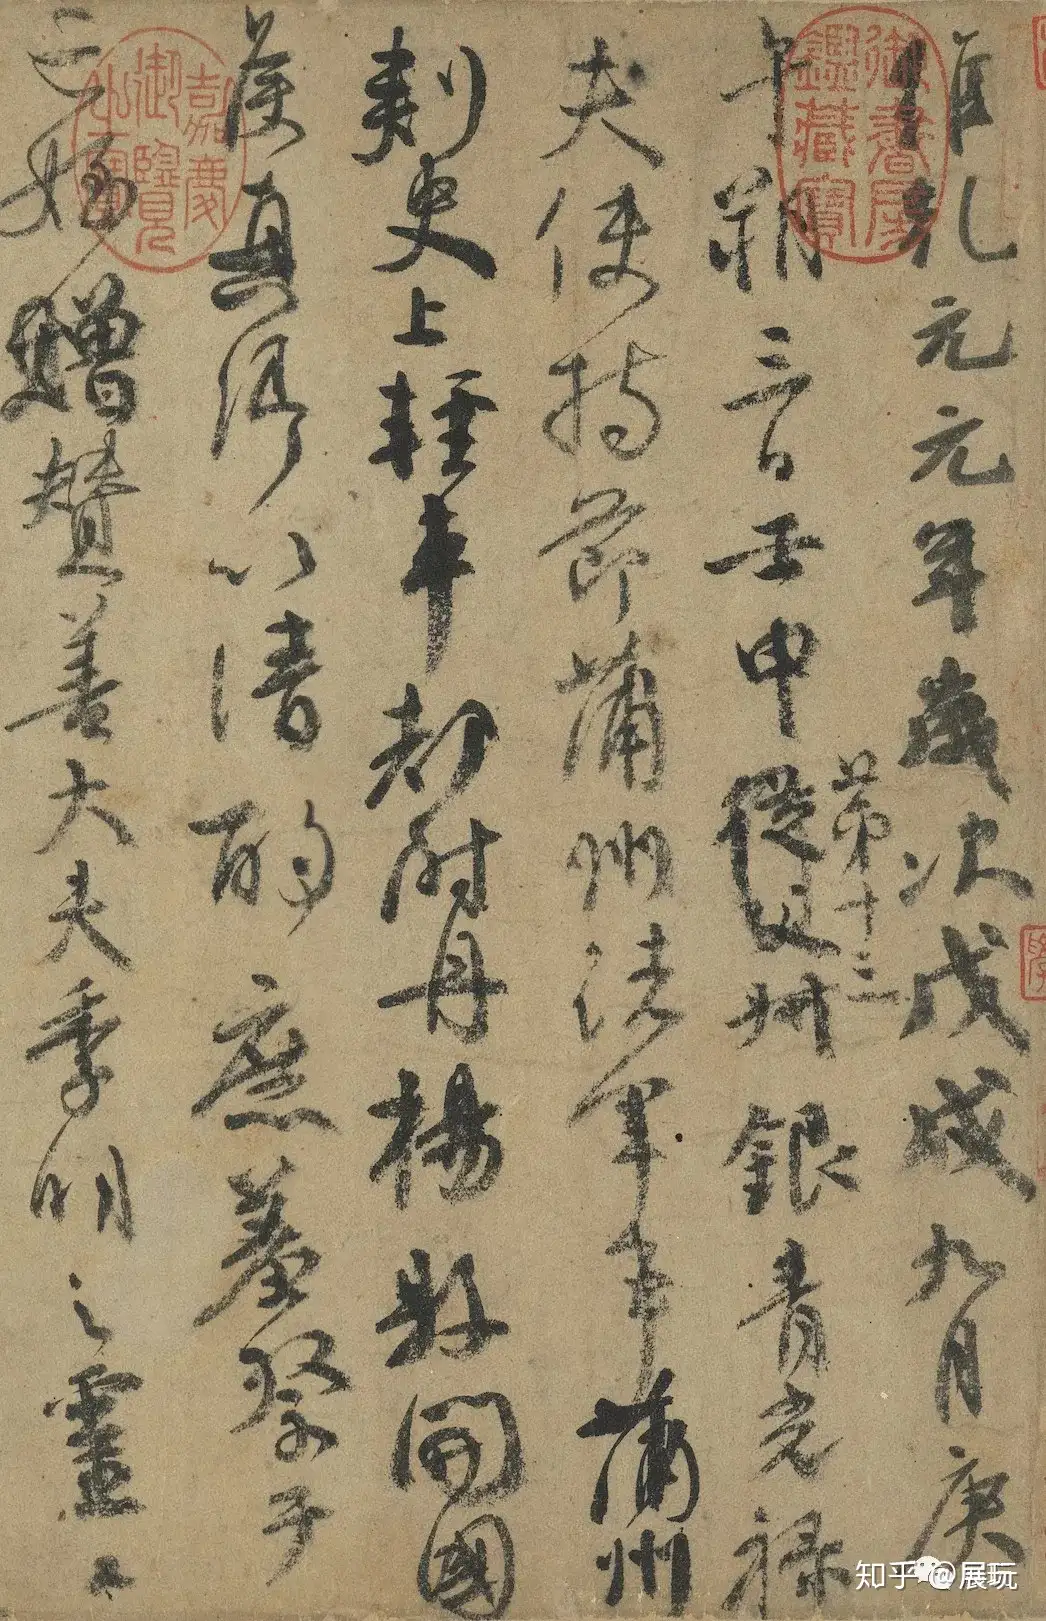 維乾元元年歲次戊戌九月庚
午朔三日壬申從父叔銀青光祿
第十三
夫使持節蒲州諸軍事蒲州
刺史上輕車都尉丹楊縣開國
侯真卿以清酌庶羞祭于
亡姪贈贊善大夫季明之靈曰
御書房鑑藏寶
嘉慶御覽之寶
知乎 @展玩